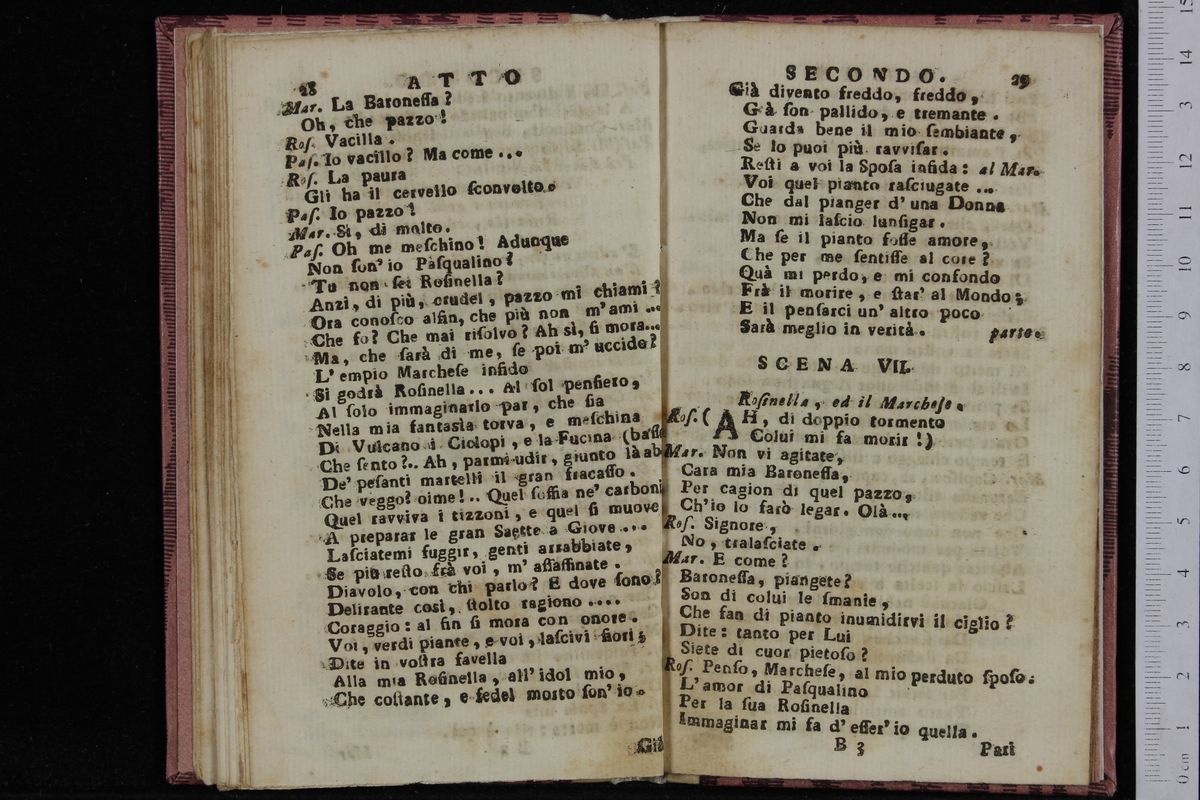 28 ATTO
Mar. La Baroneſſa?
Oh, che pazzo!
Roſ. Vacilla.
Paſ. Io vacillo? Ma come...
Roſ. La paura
Gli ha il cervello ſconvolto.
Paſ. Io pazzo!
Mar. Sì, di molto.
Paſ. Oh me meſchino! Adunque
Non ſon' io Paſqualino?
Tu non ſei Roſinella?
Anzi, di più, crudel, pazzo mi chiami?
Ora conoſco alfin, che più non m'ami...
Che fo? Che mai riſolvo? Ah sì, ſi mora...
Ma, che ſarà di me, ſe poi m'uccido?
L'empio Marcheſe infido
Si godrà Roſinella... Al ſol penſiero,
Al ſolo immaginarlo par, che ſia
Nella mia fantasìa torva, e meſchina
Di Vulcano i Ciclopi, e la Fucina (baſſe
Che ſento?.. Ah, parmi udir, giunto là ab
De' peſanti martelli il gran fracaſſo.
Che veggo? oime!.. Quel ſoffia ne' carboni
Quel ravviva i tizzoni, e quel ſi muove
A preparar le gran Saette a Giove...
Laſciatemi fuggir, genti arrabbiate,
Se più reſto frà voi, m'aſſaſſinate.
Diavolo, con chi parlo? E dove ſono?
Delirante così, ſtolto ragiono....
Coraggio: al fin ſi mora con onore.
Voi, verdi piante, e voi, laſcivi fiori;
Dite in voſtra favella
Alla mia Roſinella, all'idol mio,
Che coſtante, e fedel morto ſon'io.
Già
SECONDO. 29
Già divento freddo, freddo,
Già ſon pallido, e tremante.
Guarda bene il mio ſembiante,
Se lo puoi più ravviſar.
Reſti a voi la Spoſa infida: al Mar.
Voi quel pianto raſciugate...
Che dal pianger d'una Donna
Non mi laſcio luſigar.
Ma ſe il pianto foſſe amore,
Che per me ſentiſſe al core?
Quà mi perdo, e mi confondo
Frà il morire, e ſtar' al Mondo;
E il penſarci un' altro poco
Sarà meglio in verità. parte.
SCENA VII.
Roſinella, ed il Marcheſe.
Roſ. (AH, di doppio tormento
Colui mi fa morir!)
Mar. Non vi agitate,
Cara mia Baroneſſa,
Per cagion di quel pazzo,
Ch'io lo farò legar. Olà...
Roſ. Signore,
No, tralaſciate.
Mar. E come?
Baroneſſa, piangete?
Son di colui le ſmanie,
Che fan di pianto inumidirvi il ciglio?
Dite: tanto per Lui
Siete di cuor pietoſo?
Roſ. Penſo, Marcheſe, al mio perduto ſpoſo:
L'amor di Paſqualino
Per la ſua Roſinella
Immaginar mi fa d'eſſer'io quella.
B 3 Pari
15
14
13
12
11
10
9
8
7
6
5
4
3
2
1
0 cm